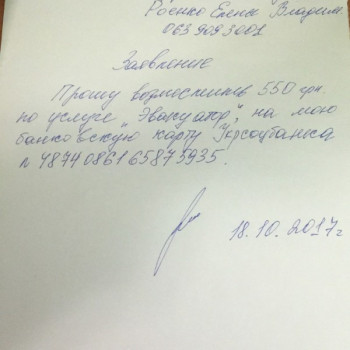 Роенко Елена Владим.
063 909 3001
Заявление
Прошу возместить 550 грн.
по услуге „Эвакуатор", на мою
банковскую карту Укрсоцбанка
n 4874086165873935.
18.10.2017г